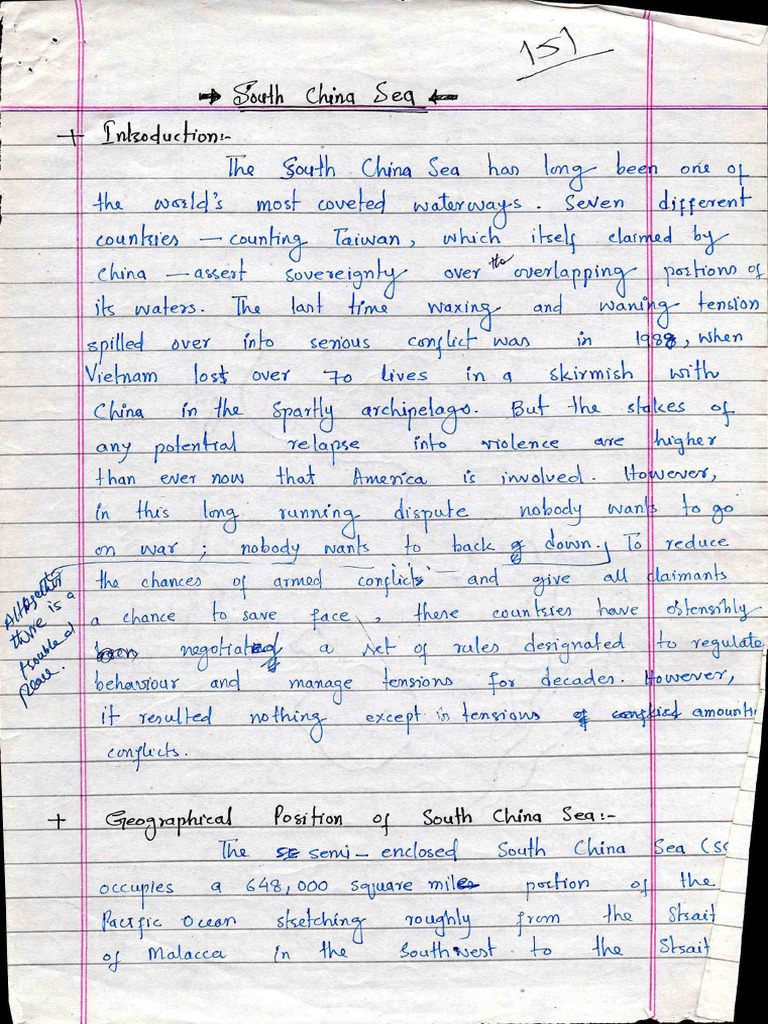 151
→ South China Sea ←
+ Introduction:-
The South China Sea has long been one of
the world's most coveted waterways. Seven different
countries — counting Taiwan, which itself claimed by
China — assert sovereignty over the overlapping portions of
its waters. The last time waxing and waning tension
spilled over into serious conflict was in 1988, when
Vietnam lost over 70 lives in a skirmish with
China in the Spartly archipelago. But the stakes of
any potential relapse into violence are higher
than ever now that America is involved. However,
in this long running dispute nobody wants to go
on war ; nobody wants to back down. To reduce
Altogether there is a troubled peace.
the chances of armed conflicts and give all claimants
a chance to save face, these countries have ostensibly
negotiated a set of rules designated to regulate
behaviour and manage tensions for decades. However,
it resulted nothing except in tensions amounti
conflicts.
+ Geographical Position of South China Sea:-
The semi-enclosed South China Sea (SC
occupies a 648,000 square miles portion of the
Pacific Ocean stretching roughly from the Strait
of Malacca in the Southwest to the Strait